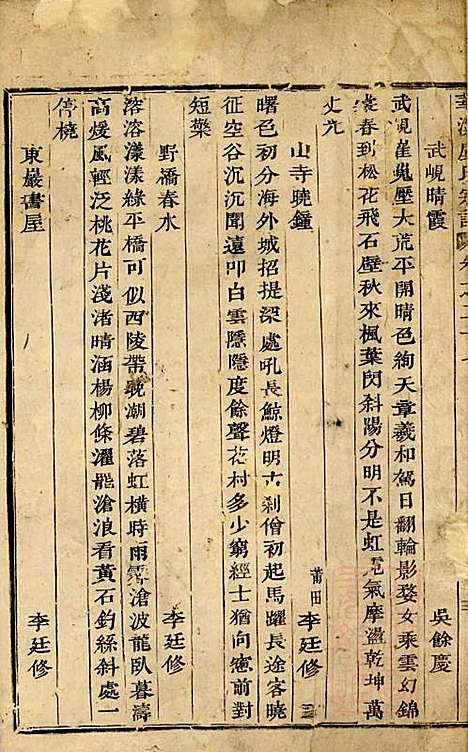 武峴晴霞　吳餘慶
武峴崔嵬壓大荒平開晴色絢天章羲和駕日翻輪影婺女乘雲幻錦
裳春到松花飛石壁秋來楓葉閃斜陽分明不是虹霓氣摩盪乾坤萬
丈光
山寺曉鐘　莆田　李廷修
曙色初分海外城招提深處吼長鯨燈明古剎僧初起馬躍長途客曉
征空谷沉沉聞遠叩白雲隱隱度餘聲花村多少窮經士猶向窻前對
短檠
野橋春水　李廷修
溶溶漾漾綠平橋可似西陵帶晚潮碧落虹橫時雨霽滄波龍臥暮濤
高煖風輕泛桃花片淺渚晴涵楊柳條濯龍滄浪看黃石釣絲斜處一
停橈
東巖書屋　李廷修